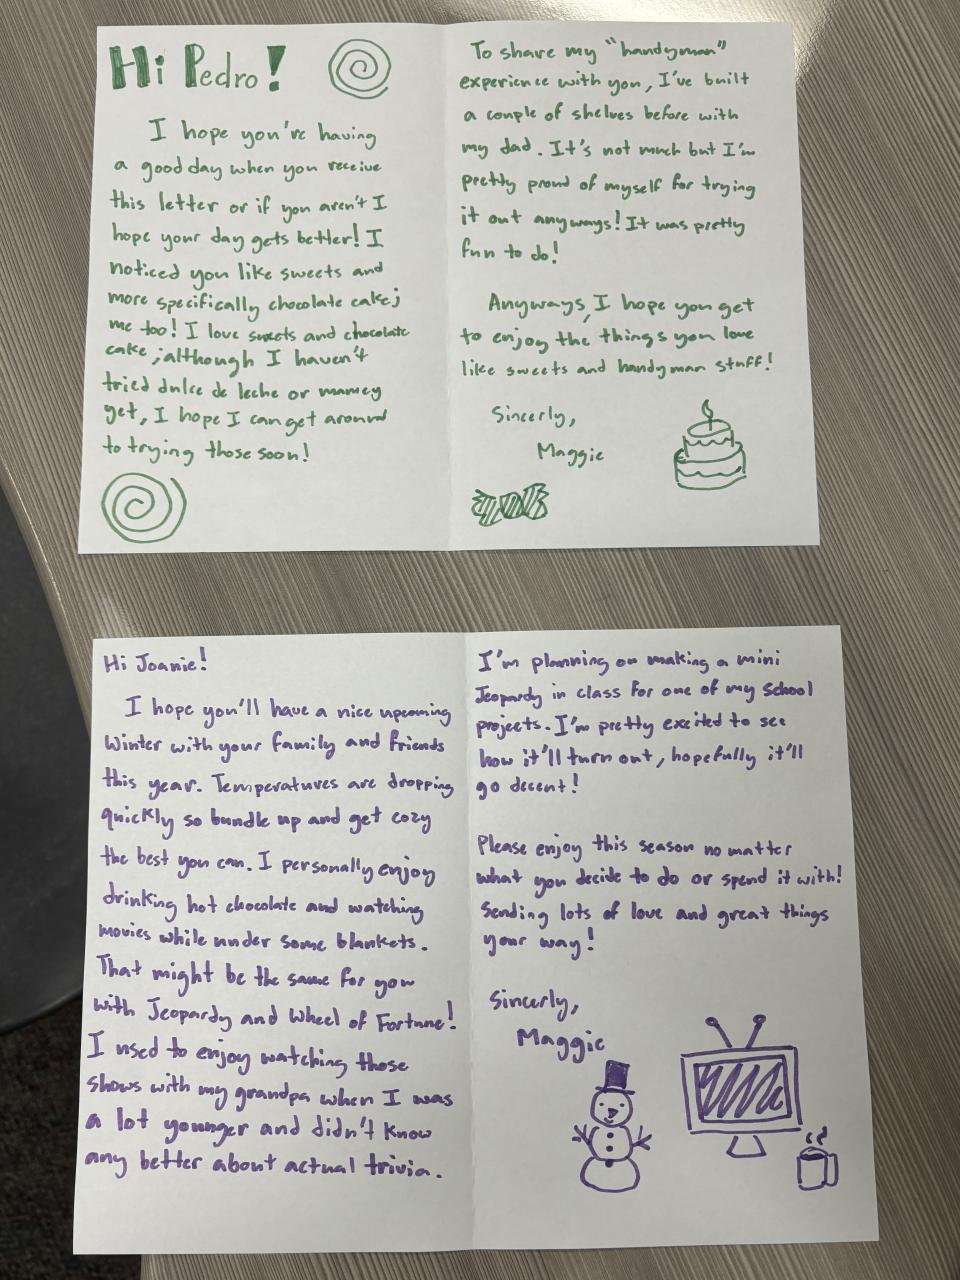 Hi Pedro!
I hope you're having
a good day when you receive
this letter or if you aren't I
hope your day gets better! I
noticed you like sweets and
more specifically chocolate cake;
me too! I love sweets and chocolate
cake; although I haven't
tried dulce de leche or mamey
yet, I hope I can get around
to trying those soon!
To share my "handyman"
experience with you, I've built
a couple of shelves before with
my dad. It's not much but I'm
pretty proud of myself for trying
it out anyways! It was pretty
fun to do!
Anyways, I hope you get
to enjoy the things you love
like sweets and handyman stuff!
Sincerly,
Maggie
Hi Joanie!
I hope you'll have a nice upcoming
Winter with your family and friends
this year. Temperatures are dropping
quickly so bundle up and get cozy
the best you can. I personally enjoy
drinking hot chocolate and watching
movies while under some blankets.
That might be the same for you
with Jeopardy and Wheel of Fortune!
I used to enjoy watching those
shows with my grandpa when I was
a lot younger and didn't know
any better about actual trivia.
I'm planning on making a mini
Jeopardy in class for one of my school
projects. I'm pretty excited to see
how it'll turn out, hopefully it'll
go decent!
Please enjoy this season no matter
what you decide to do or spend it with!
Sending lots of love and great things
your way!
Sincerly,
Maggie